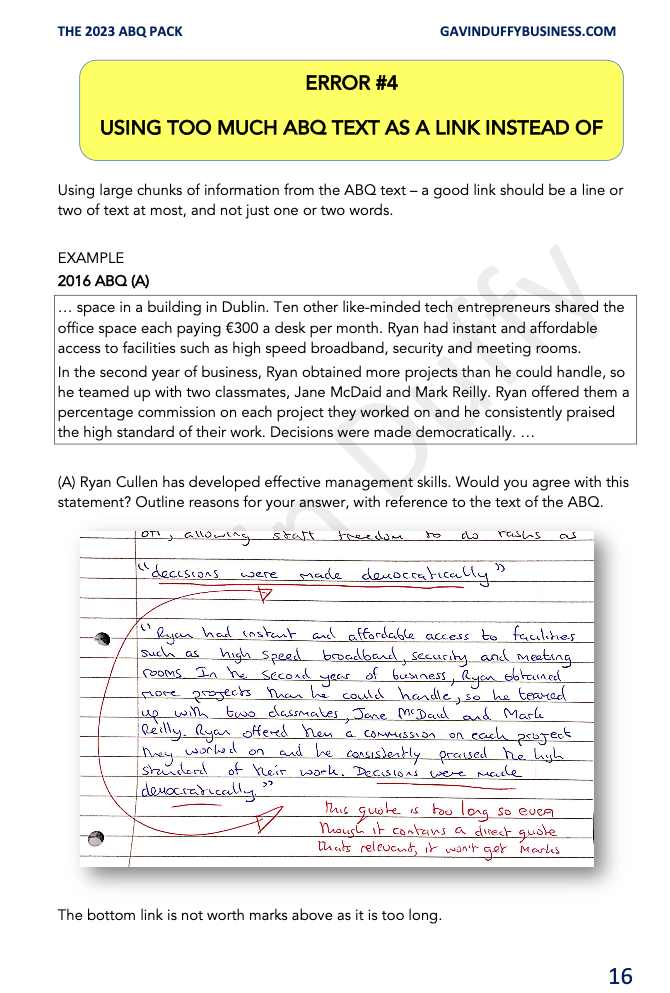 THE 2023 ABQ PACK GAVINDUFFYBUSINESS.COM
ERROR #4
USING TOO MUCH ABQ TEXT AS A LINK INSTEAD OF
Using large chunks of information from the ABQ text – a good link should be a line or
two of text at most, and not just one or two words.
EXAMPLE
2016 ABQ (A)
… space in a building in Dublin. Ten other like-minded tech entrepreneurs shared the
office space each paying €300 a desk per month. Ryan had instant and affordable
access to facilities such as high speed broadband, security and meeting rooms.
In the second year of business, Ryan obtained more projects than he could handle, so
he teamed up with two classmates, Jane McDaid and Mark Reilly. Ryan offered them a
percentage commission on each project they worked on and he consistently praised
the high standard of their work. Decisions were made democratically. …
(A) Ryan Cullen has developed effective management skills. Would you agree with this
statement? Outline reasons for your answer, with reference to the text of the ABQ.
on, allowing staff freedom to do tasks as
"decisions were made democratically"
"Ryan had instant and affordable access to facilities
such as high speed broadband, security and meeting
rooms In the second year of business, Ryan obtained
more projects than he could handle, so he teamed
up with two classmates, Jane McDaid and Mark
Reilly. Ryan offered them a commission on each project
they worked on and he consistently praised the high
standard of their work. Decisions were made
democratically."
this quote is too long so even
though it contains a direct quote
thats relevant, it won't get marks
The bottom link is not worth marks above as it is too long.
16
in Duffy